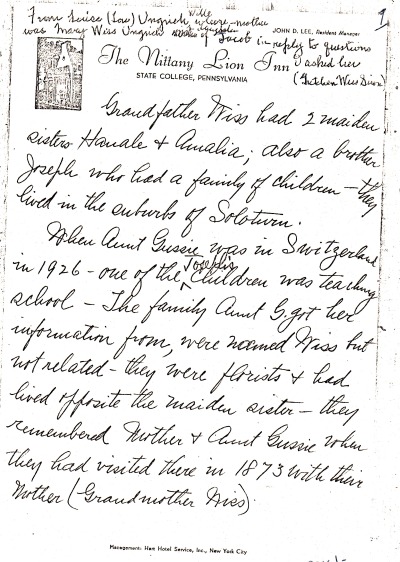 From Luise (Lou) Ungrich Wilke whose mother 1
was Mary Wiss Ungrich of Jacob in reply to questions
I asked her
(Gretchen Wiss Dixon)
JOHN D. LEE, Resident Manager
The Nittany Lion Inn
STATE COLLEGE, PENNSYLVANIA
Grandfather Wiss had 2 maiden
sisters Hanale & Amalia; also a brother
Joseph who had a family of children - they
lived in the suburbs of Soloturn.
When Aunt Gussie was in Switzerland
in 1926 - one of the Joseph's children was teaching
school - The family Aunt G. got her
information from, were named Wiss but
not related - they were florists & had
lived opposite the maiden sister - they
remembered Mother & Aunt Gussie when
they had visited there in 1873 with their
Mother (Grandmother Wiss).
Management: Hart Hotel Service, Inc., New York City